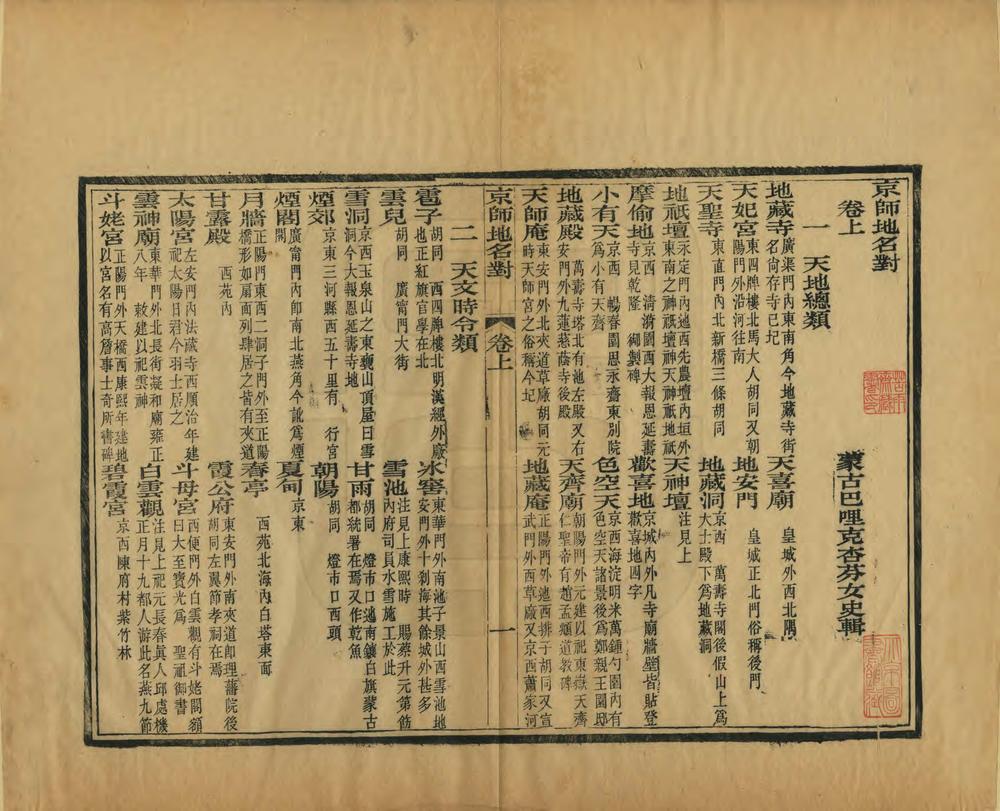 京師地名對
卷上　蒙古巴哩克杏芬女史輯
一　天地總類
地藏寺廣渠門內東南角今地藏寺街名尙存寺已圮　天喜廟皇城外西北隅
天妃宮東四牌樓北馬大人胡同又朝陽門外沿河往南　地安門皇城正北門俗稱後門
天聖寺東直門內北新橋三條胡同　地藏洞京西萬壽寺閣後假山上爲大士殿下爲地藏洞
地祇壇永定門內迤西先農壇內垣外東南之神祇壇壇神天神祇地祇　天神壇注見上
摩偷地京西清漪園西大報恩延壽寺見乾隆御製碑　歡喜地京城內外凡寺廟牆壁皆貼登歡喜地四字
小有天京西暢春園恩永齋東別院爲小有天齋　色空天京西海淀明米萬鍾勺園內有色空天諸景後爲鄭親王園邸
地藏殿萬壽寺塔北有池左殿又右安門外九蓮慈蔭寺後殿　天齊廟朝陽門外元建以祀東嶽天齊仁聖帝有趙孟頫道敎碑
天師庵東安門外北夾道草廠胡同元時天師宮之俗稱今圮　地藏庵正陽門外迤西排子胡同又宣武門外西草廠又京西蕭家河
京師地名對　卷上　一
二　天文時令類
雹子胡同西四牌樓北明漢經外廠也正紅旗官學在北　冰窖東華門外南池子景山西雪池地安門外十剎海其餘城外甚多
雲兒胡同廣甯門大街　雪池注見上康熙時賜蔡升元第飭內府司員水雪施工於此
雪洞京西玉泉山之東甕山頂屋曰雪洞今大報恩延壽寺地　甘雨胡同燈市口迤南鑲白旗蒙古都統署在焉又作乾魚
煙郊京東三河縣西五十里有行宮　朝陽胡同燈市口西頭
煙閣廣甯門內卽南北燕角今訛爲煙閣　夏甸京東
月牆正陽門東西二洞子門外至正陽橋形如扇面列肆居之皆有夾道　春亭西苑北海內白塔東面
甘露殿西苑內　霞公府東安門外南夾道卽理藩院後胡同左翼節孝祠在焉
太陽宮左安門內法藏寺西順治年建祀太陽日君今羽士居之　斗母宮西便門外白雲觀有斗姥閣額曰大至寶光爲聖祖御書
雲神廟東華門外北長街凝和廟雍正八年敕建以祀雲神　白雲觀注見上祀元長春眞人邱處機正月十九都人游此名燕九節
斗姥宮正陽門外天橋西康熙年建地以宮名有高詹事士奇所書碑　碧霞宮京西陳府村紫竹林